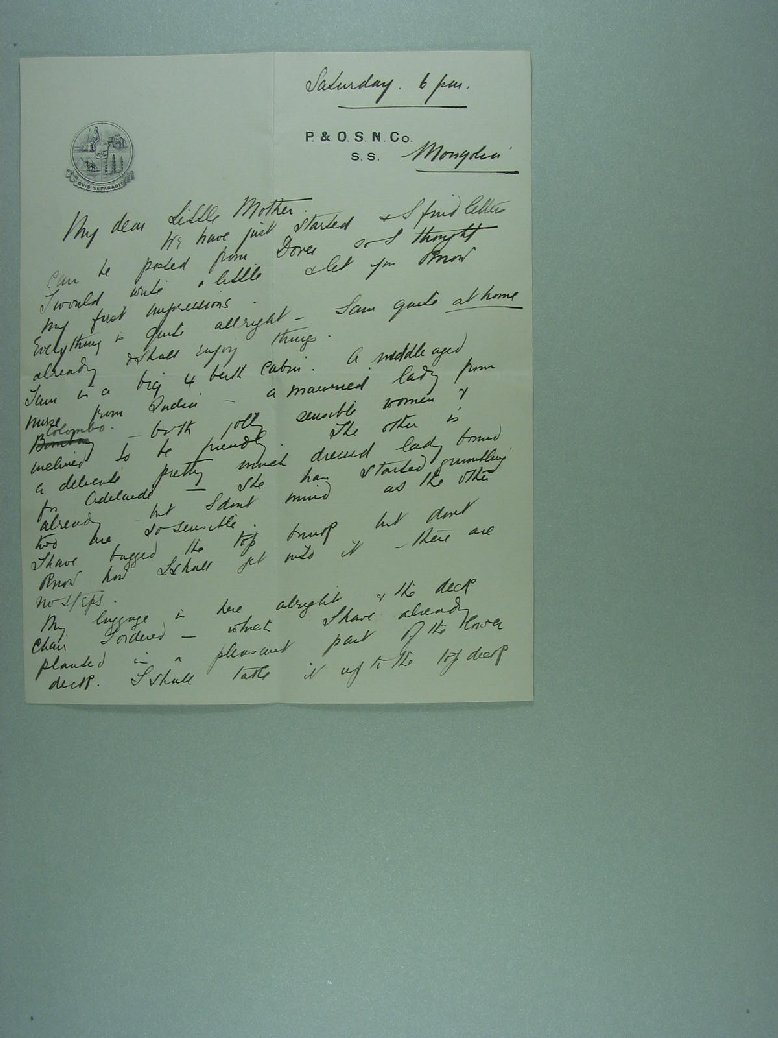 Saturday. 6 pm.
P. & O. S. N. Co.
S. S. Mongolia
QUIS SEPARABIT
My dear Little Mother.
We have just started & I find letters
can be posted from Dover so I thought
I would write a little & let you know
my first impressions.
Everything is quite allright - I am quite at home
already & shall enjoy things.
I am in a big 4 berth cabin. A middle aged
nurse from India - a married lady from
Bombay Colombo. - both jolly sensible women &
inclined to be friendly. The other is
a delicate pretty much dressed lady bound
for Adelaide - She has started grumbling
already but I dont mind as the other
two are so sensible.
I have bagged the top bunk but dont
know how I shall get into it - there are
no steps.
My luggage is here alright & the deck
chair I ordered - which I have already
planted in a pleasant part of the lower
deck. I shall take it up to the top deck